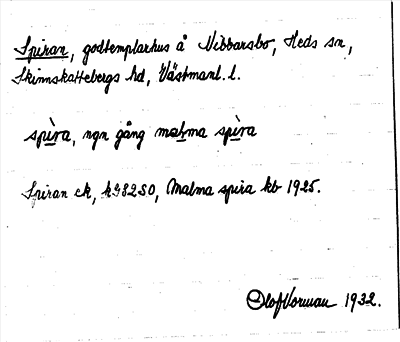 Spiran, godtemplarhus å Nibbarsbo, Heds sn,
Skinnskattebergs hd, Västmanl. l.
spìra, ngn gång malma spìra
Spiran ek, k982SO, Malma spira kb 1925.
Olof Vorman 1932.